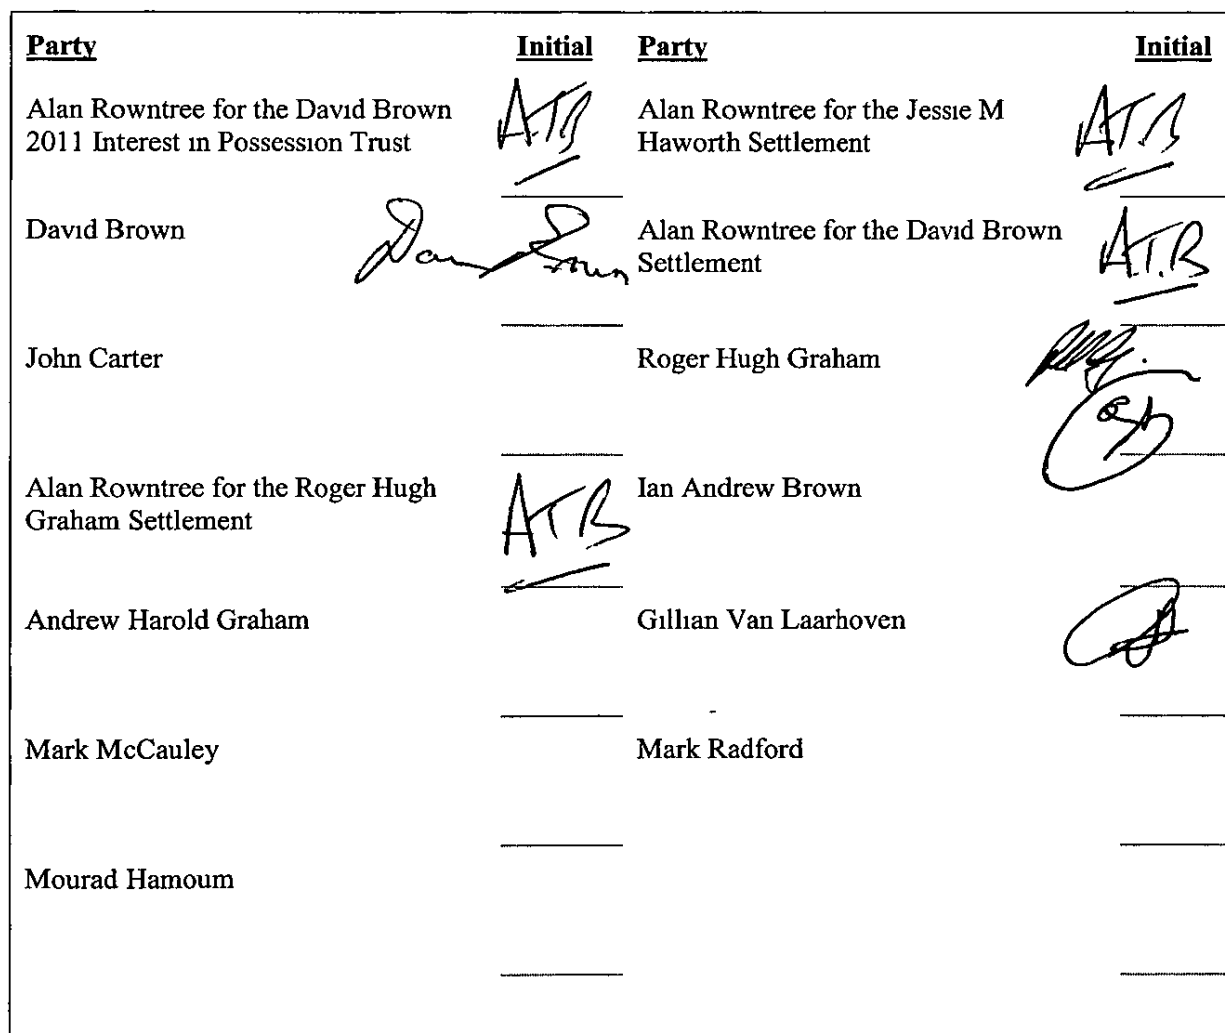 Party Initial Party Initial
Alan Rowntree for the David Brown
2011 Interest in Possession Trust
A.T.B
Alan Rowntree for the Jessie M
Haworth Settlement
A.T.B
David Brown
David Brown
Alan Rowntree for the David Brown
Settlement
A.T.B
John Carter
Roger Hugh Graham
Alan Rowntree for the Roger Hugh
Graham Settlement
ATB
Ian Andrew Brown
Andrew Harold Graham
Gillian Van Laarhoven
Mark McCauley
Mark Radford
Mourad Hamoum